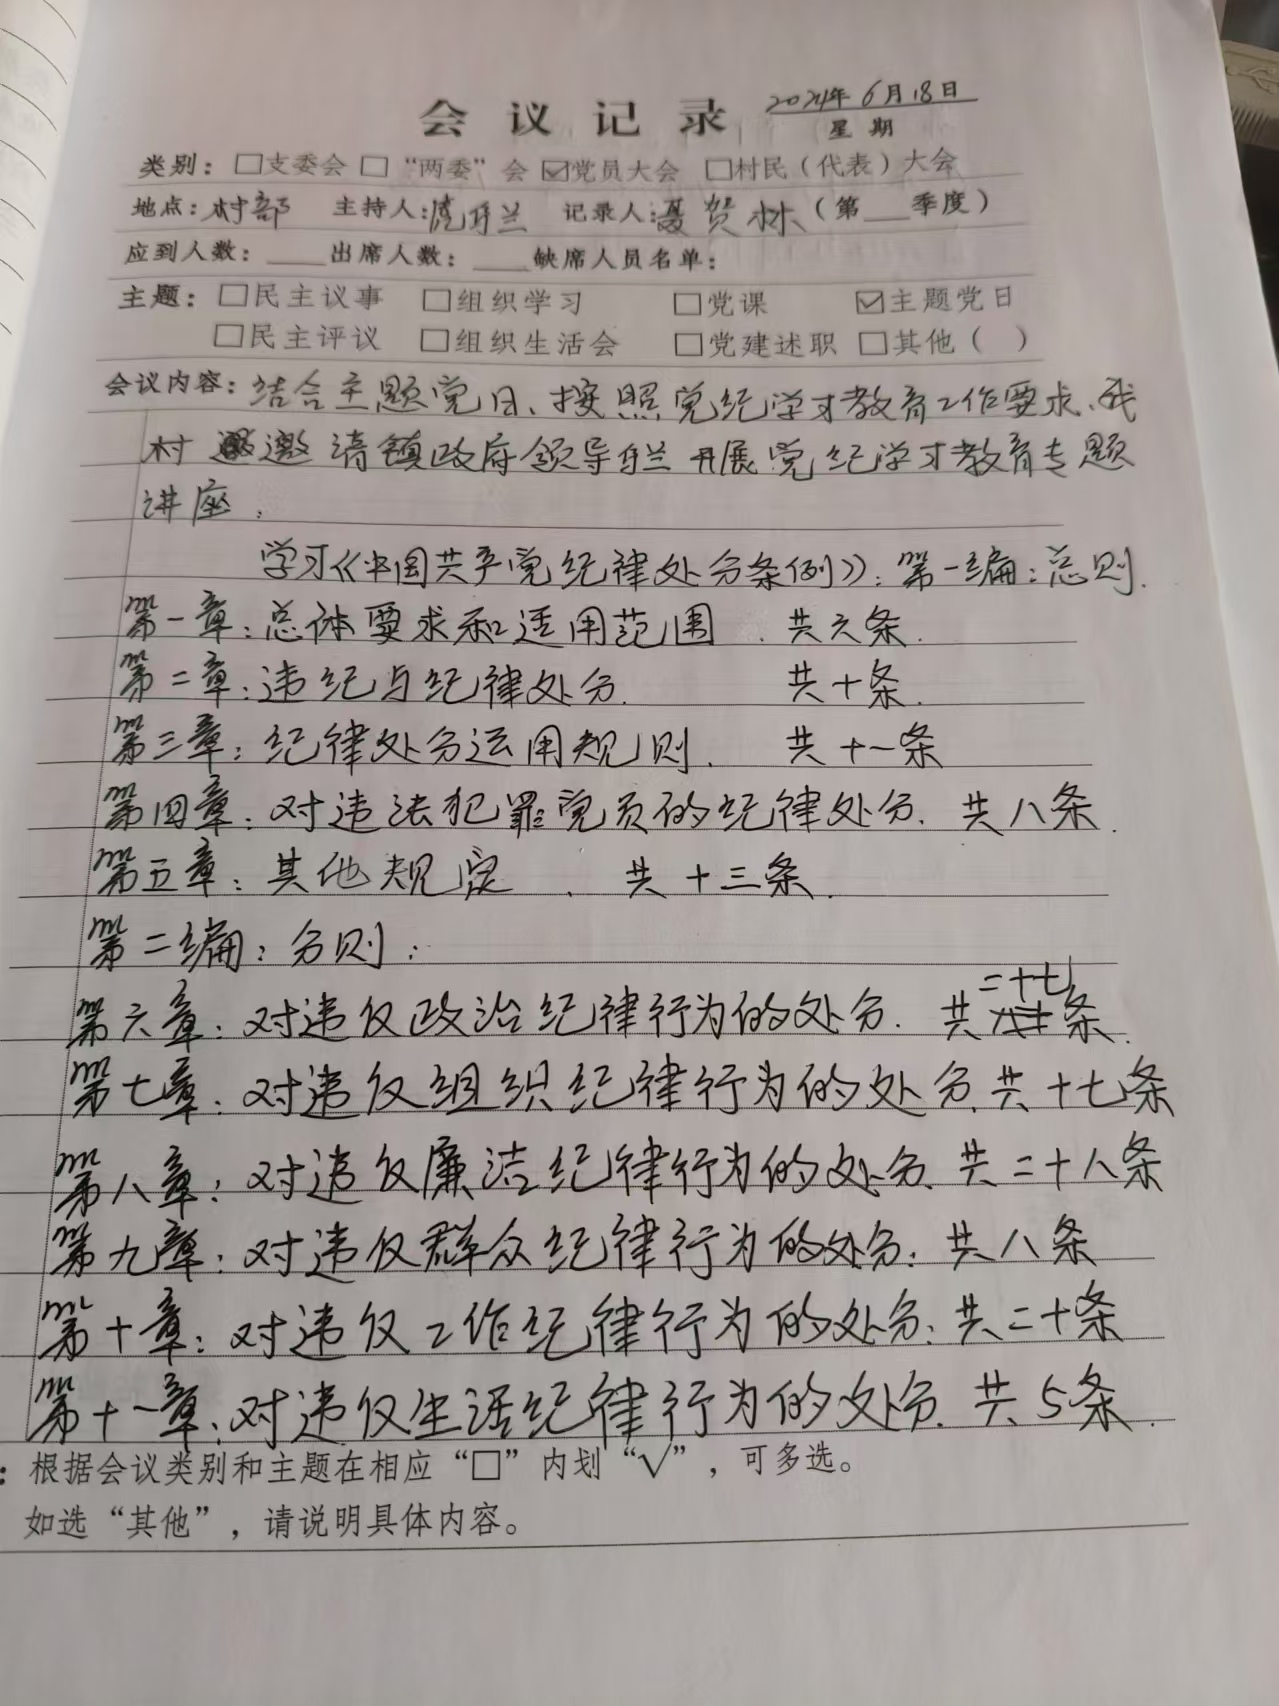 会议记录 2024年6月18日
星期
类别：□支委会 □“两委”会 ☑党员大会 □村民（代表）大会
地点：村部 主持人： 记录人：聂贺林（第___季度）
应到人数：____出席人数：____缺席人员名单：
主题：□民主议事 □组织学习 □党课 ☑主题党日
□民主评议 □组织生活会 □党建述职 □其他（ ）
会议内容：结合主题党日、按照党纪学习教育工作要求、我
村邀请镇政府领导 开展党纪学习教育专题
讲座.
学习《中国共产党纪律处分条例》：第一编：总则.
第一章：总体要求和适用范围. 共六条.
第二章：违纪与纪律处分. 共十条.
第三章：纪律处分运用规则. 共十一条
第四章：对违法犯罪党员的纪律处分. 共八条.
第五章：其他规定. 共十三条.
第二编：分则：
第六章：对违反政治纪律行为的处分. 共二十七条.
第七章：对违反组织纪律行为的处分.共十七条
第八章：对违反廉洁纪律行为的处分.共二十八条
第九章：对违反群众纪律行为的处分：共八条
第十章：对违反工作纪律行为的处分：共二十条
第十一章：对违反生活纪律行为的处分.共5条.
：根据会议类别和主题在相应“□”内划“√”，可多选。
如选“其他”，请说明具体内容。